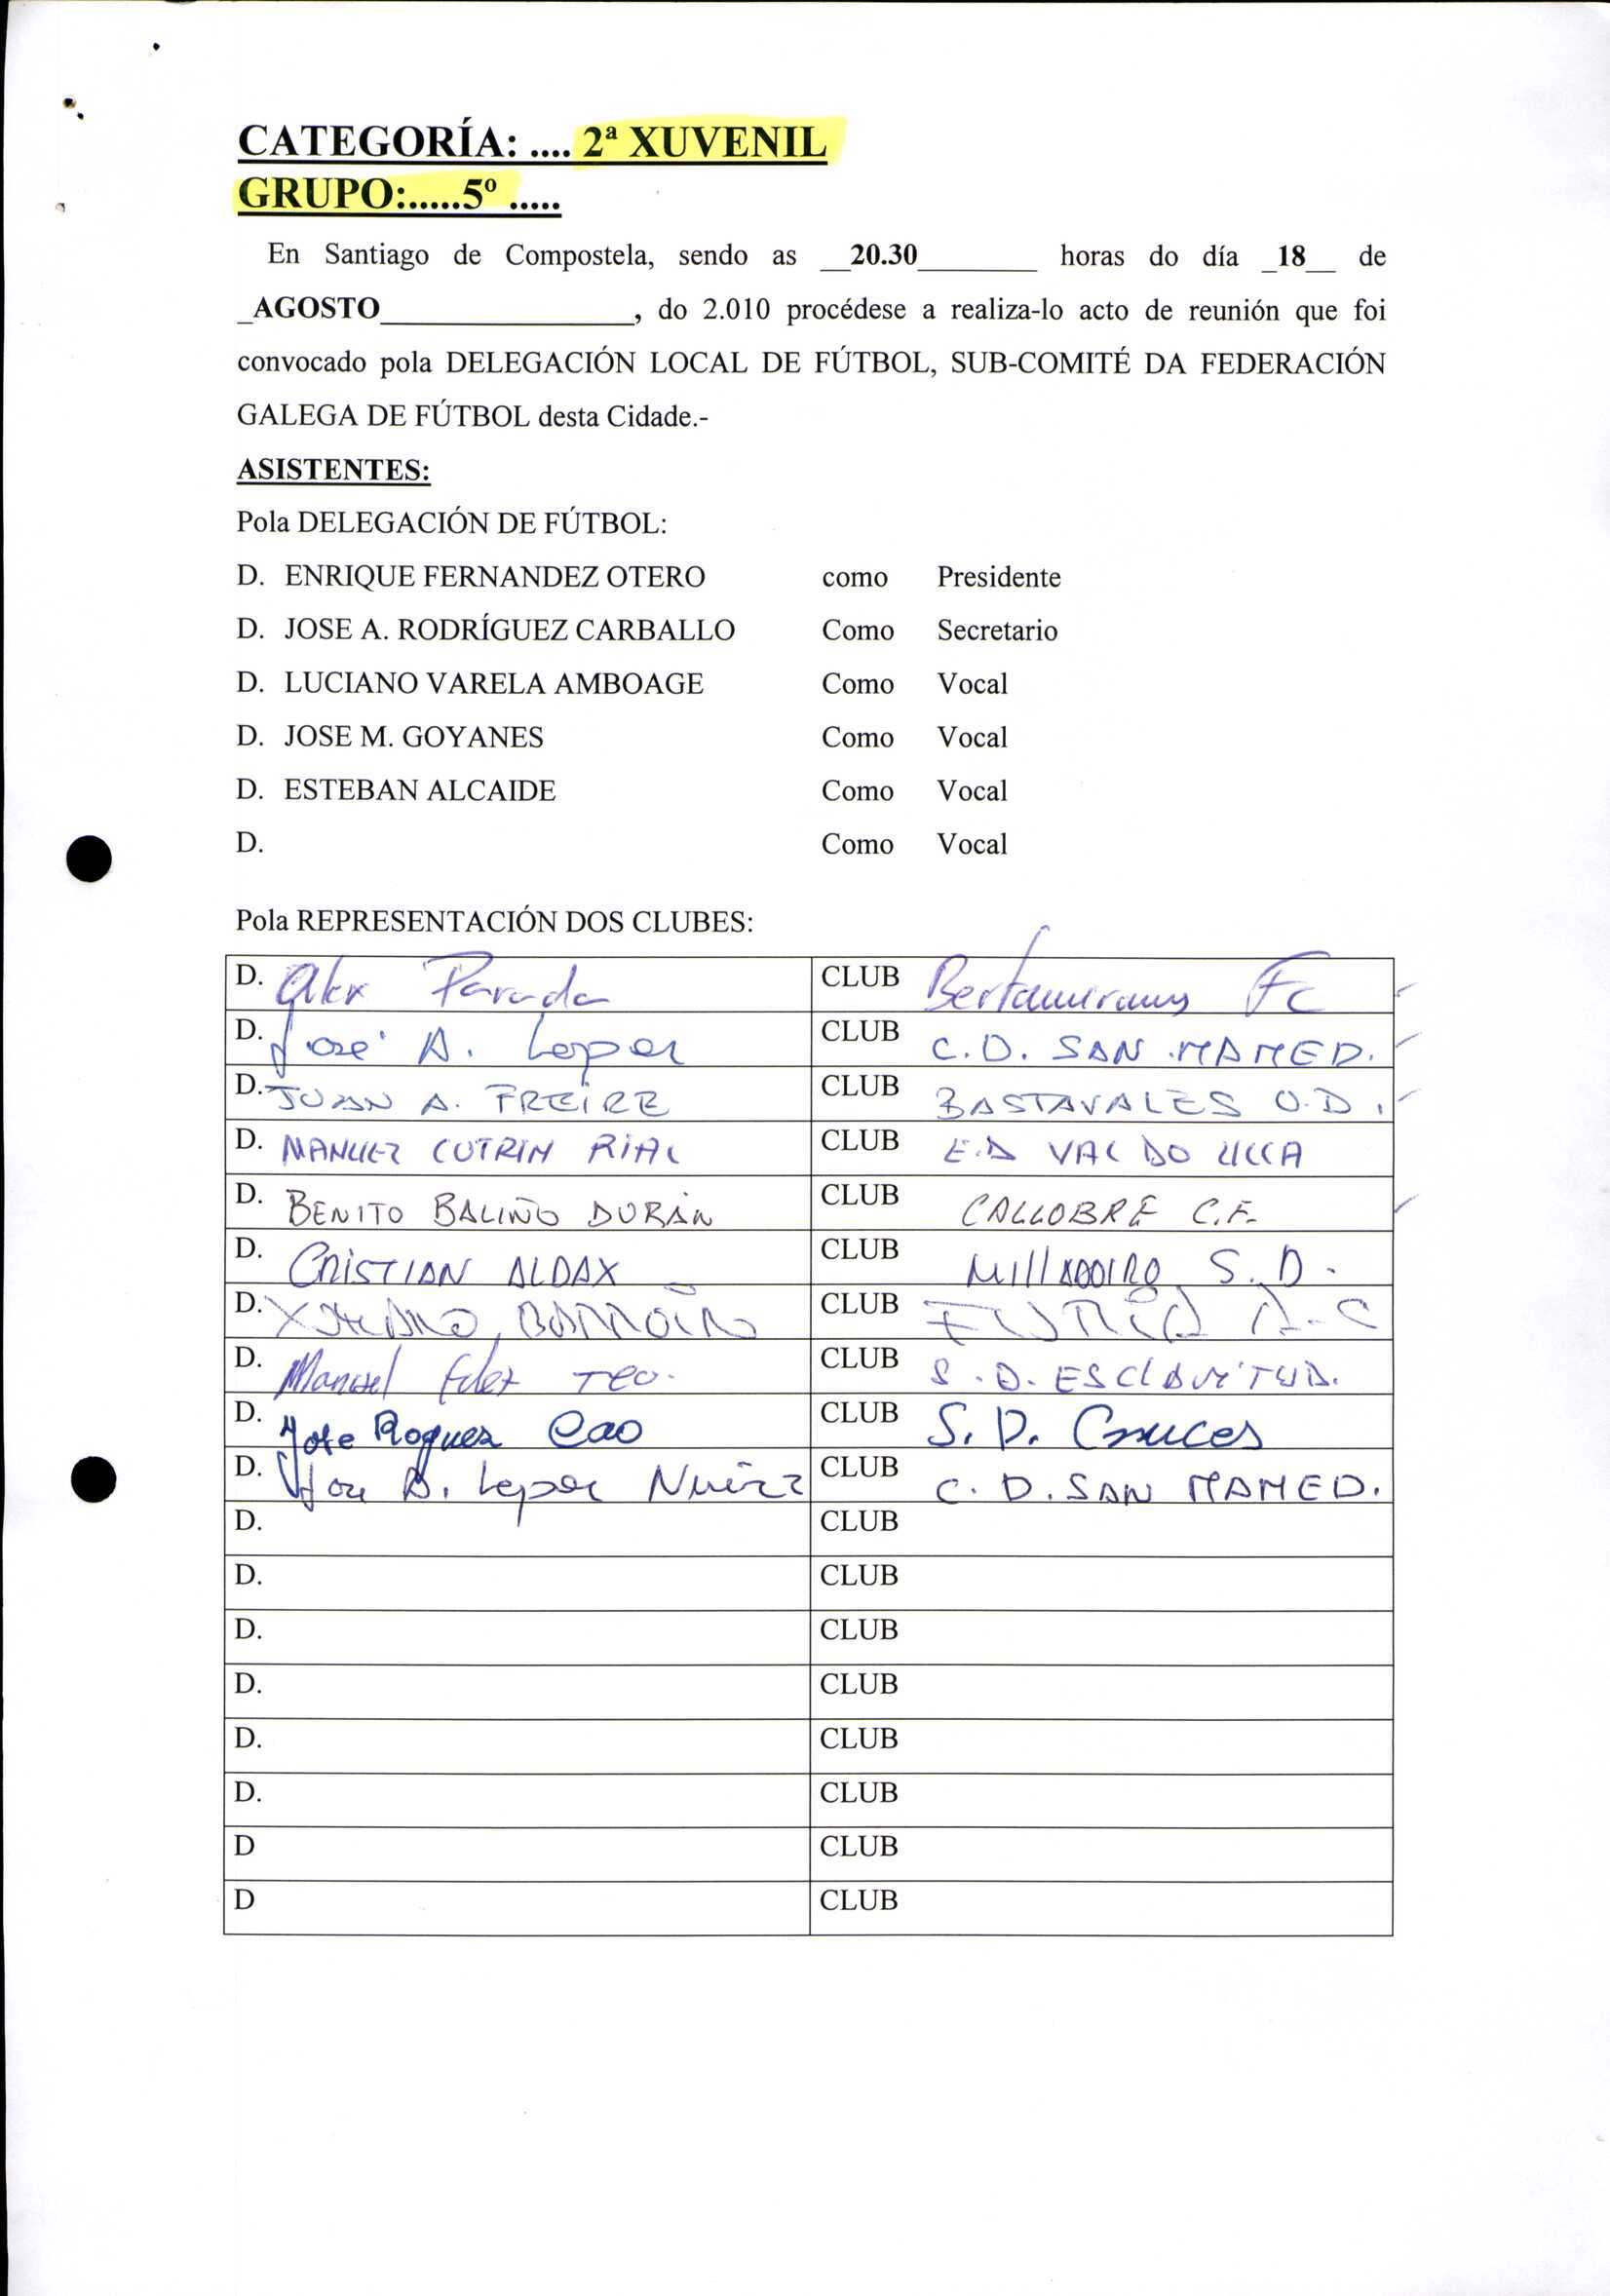 CATEGORÍA: .... 2ª XUVENIL
GRUPO:.....5º .....
En Santiago de Compostela, sendo as __20.30________ horas do día _18__ de
_AGOSTO_________________, do 2.010 procédese a realiza-lo acto de reunión que foi
convocado pola DELEGACIÓN LOCAL DE FÚTBOL, SUB-COMITÉ DA FEDERACIÓN
GALEGA DE FÚTBOL desta Cidade.-
ASISTENTES:
Pola DELEGACIÓN DE FÚTBOL:
D. ENRIQUE FERNANDEZ OTERO como Presidente
D. JOSE A. RODRÍGUEZ CARBALLO Como Secretario
D. LUCIANO VARELA AMBOAGE Como Vocal
D. JOSE M. GOYANES Como Vocal
D. ESTEBAN ALCAIDE Como Vocal
D. Como Vocal
Pola REPRESENTACIÓN DOS CLUBES:
D. Alex Parada CLUB Bertamirans FC
D. José A. Lopez CLUB C.D. SAN MAMED.
D. JUAN A. FREIRE CLUB BASTAVALES S.D.
D. MANUEL COTRIN RIAL CLUB E.D VAL DO ULLA
D. BENITO BALIÑO DURÁN CLUB CALLOBRE C.F.
D. CRISTIAN ALDAX CLUB MILLADOIRO S.D.
D. CLUB FURIA A.C
D. Manuel Fdez TEO. CLUB S.D. ESCLAVITUD.
D. Jose Roguez Cao CLUB S.D. Cruces
D. Jose A. Lopez Nuñez CLUB C.D. SAN MAMED.
D. CLUB
D. CLUB
D. CLUB
D. CLUB
D. CLUB
D. CLUB
D CLUB
D CLUB